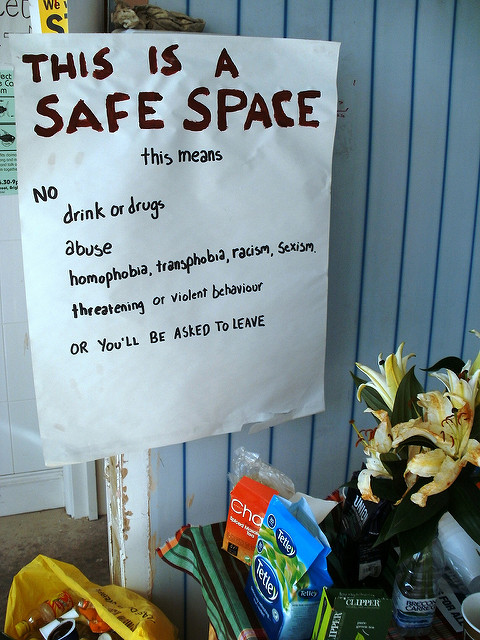 We
THIS IS A
SAFE SPACE
this means
NO
drink or drugs
abuse
homophobia, transphobia, racism, sexism.
threatening or violent behaviour
OR YOU'LL BE ASKED TO LEAVE
Cha
Tetley
Tetley
Tetley
CLIPPER
CLIPPER
BRECON
CARREG
FOR ALL